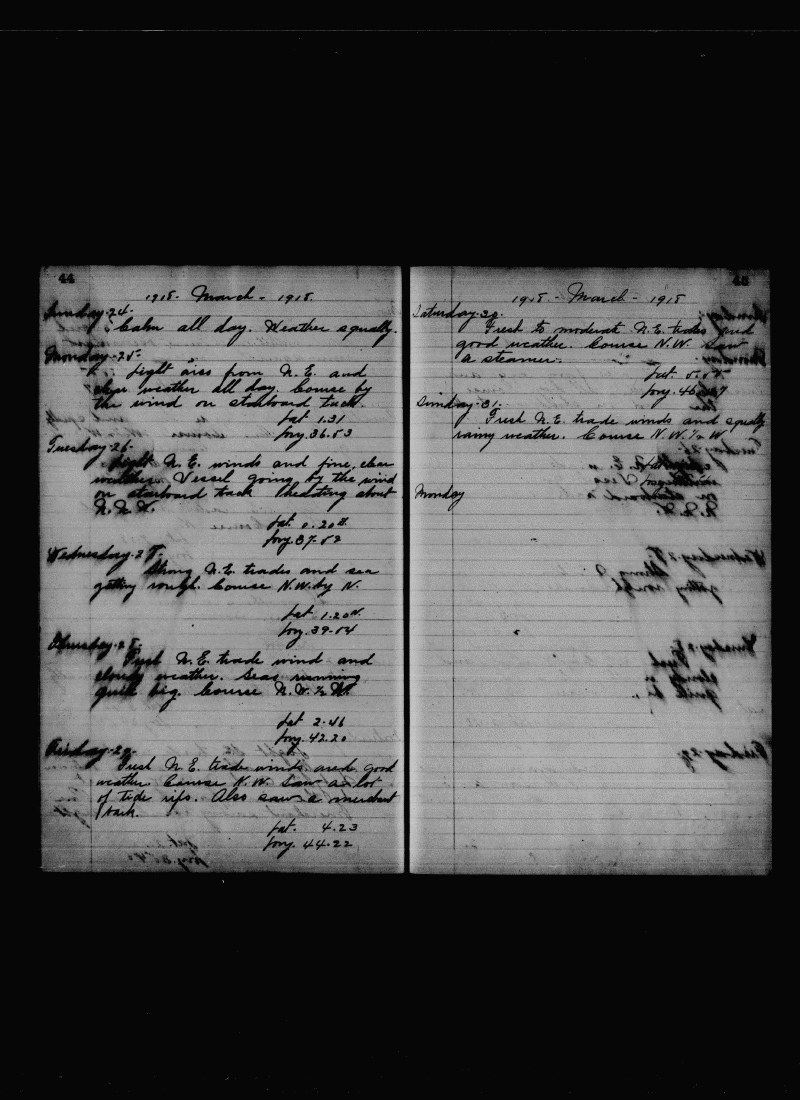 44
1918. March - 1918.
Sunday. 24.
Calm all day. Weather squally.
Monday. 25.
Light airs from N. E. and
clear weather all day. Course by
the wind on starboard tack.
Lat 1.31
Long. 36.53
Tuesday. 26.
Light N. E. winds and fine, clear
weather. Vessel going by the wind
on starboard tack heading about
N. N. W.
Lat 0.20 N.
Long. 37.52
Wednesday.
Strong N. E. trades and sea
getting rough. Course N. W. by N.
Lat 1.20 N.
Long. 39.04
Thursday. 28.
Fresh N. E. trade wind and
cloudy weather. Seas running
quite big. Course N. W. ½ N.
Lat 2.46
Long. 42.20
Friday. 29.
Fresh N. E. trade winds and good
weather Course N. W. Saw a lot
of tide rips. Also saw a merchant
bark.
Lat. 4.23
Long. 44.22
45
1918. - March - 1918
Saturday. 30.
Fresh to moderate N. E. trades and
good weather. Course N. W. Saw
a steamer.
Lat.
Long.
Sunday. 31.
Fresh N. E. trade winds and squally
rainy weather. Course N. W. ½ W.
Monday